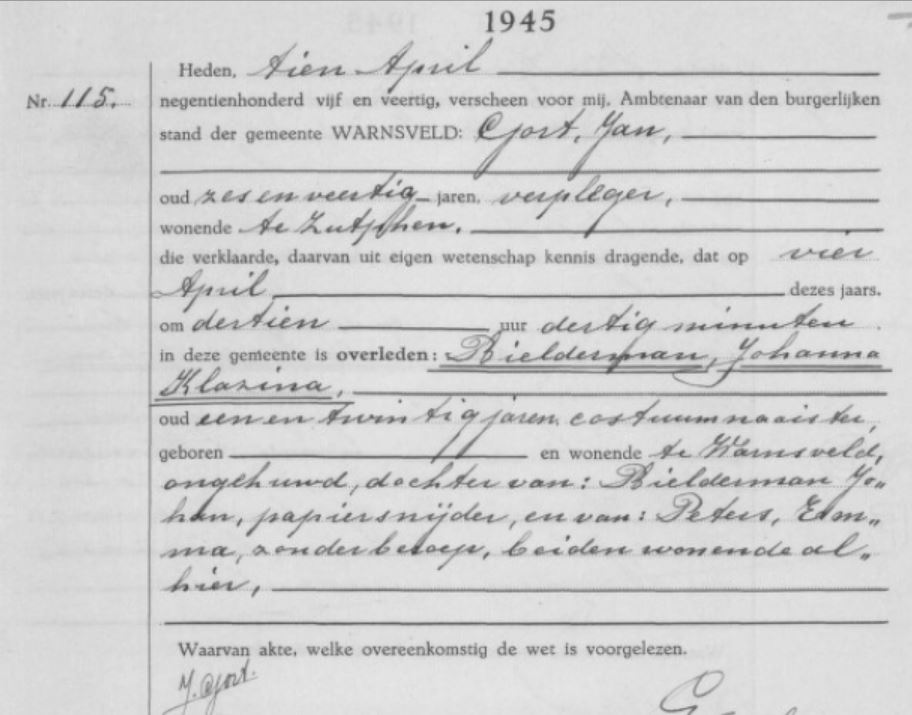 1945
Heden, tien April
Nr. 115. negentienhonderd vijf en veertig, verscheen voor mij, Ambtenaar van den burgerlijken
stand der gemeente WARNSVELD: Gort, Jan,
oud zes en veertig jaren, verpleger,
wonende te Zutphen,
die verklaarde, daarvan uit eigen wetenschap kennis dragende, dat op vier
April dezes jaars.
om dertien uur dertig minuten
in deze gemeente is overleden: Bielderman, Johanna
Klazina,
oud een en twintig jaren, costuumnaaister,
geboren en wonende te Warnsveld,
ongehuwd, dochter van: Bielderman Jo„
han, papiersnijder, en van: Peters, Em„
ma, zonder beroep, beiden wonende al„
hier,
Waarvan akte, welke overeenkomstig de wet is voorgelezen.
J. Gort.